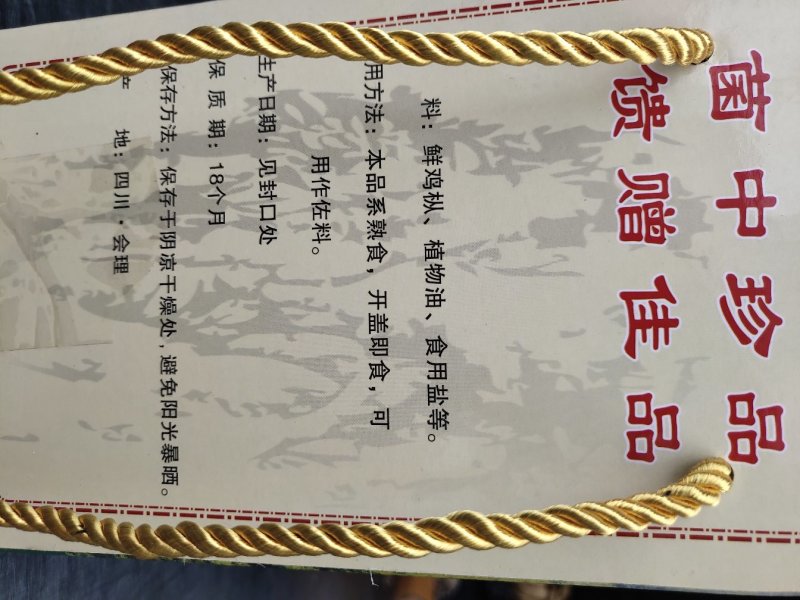 菌中珍品
馈赠佳品
料：鲜鸡枞、植物油、食用盐等。
用方法：本品系熟食，开盖即食，可
用作佐料。
生产日期：见封口处
保质期：18个月
保存方法：保存于阴凉干燥处，避免阳光暴晒。
产地：四川·会理